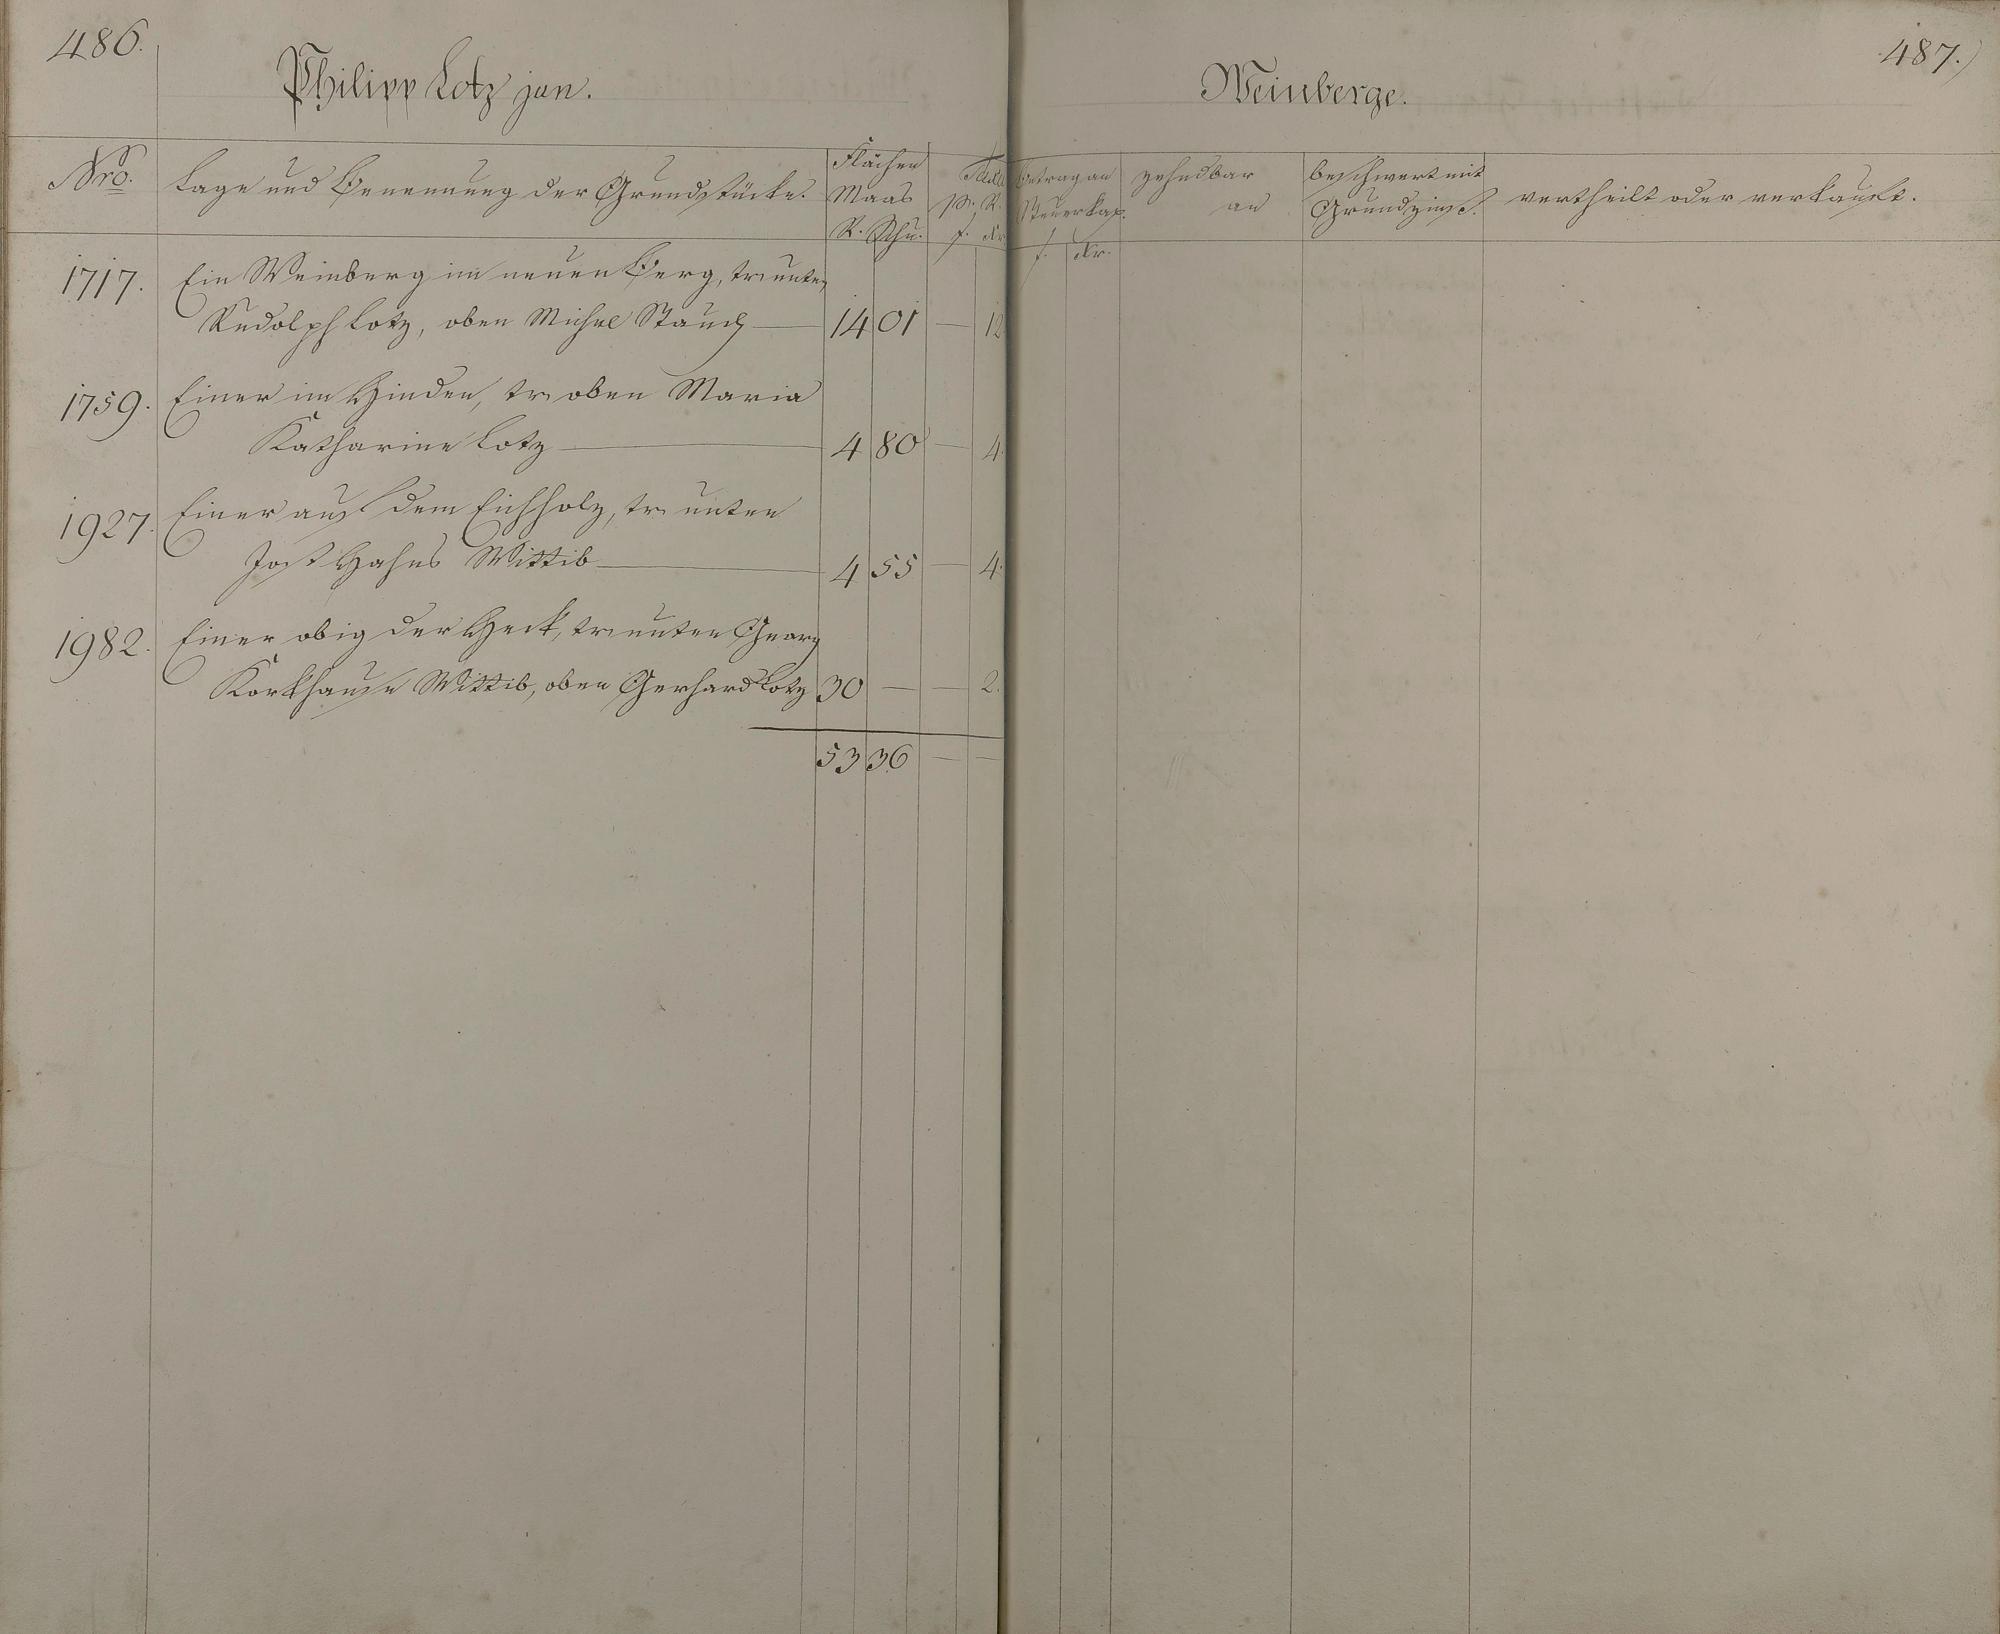 486.
Philipp Lotz jun.
Nro.
Lage und Benennung der Grundstücke.
Flächen
Maas
R. Schu.
p. R.
f. Kr
1717. Ein Weinberg im neuen Berg, tr unten
Rudolph Lotz, oben Michel Stauch — 14 01 — 12
1759. Einer im Hinden, tr oben Maria
Katharine Lotz — 4 80 — 4.
1927. Einer auf dem Eichholz, tr unten
Jost Hahns Wittib — 4 55 — 4.
1982. Einer obig der Heck, tr unten Georg
Korkhause Wittib, oben Gerhard Lotz 30 — — 2.
53 36 — —
487.
Weinberge.
Betrag an
Steuerkap.
f. Kr.
zehndbar
an
beschwert mit
Grundzins.
vertheilt oder verkauft.